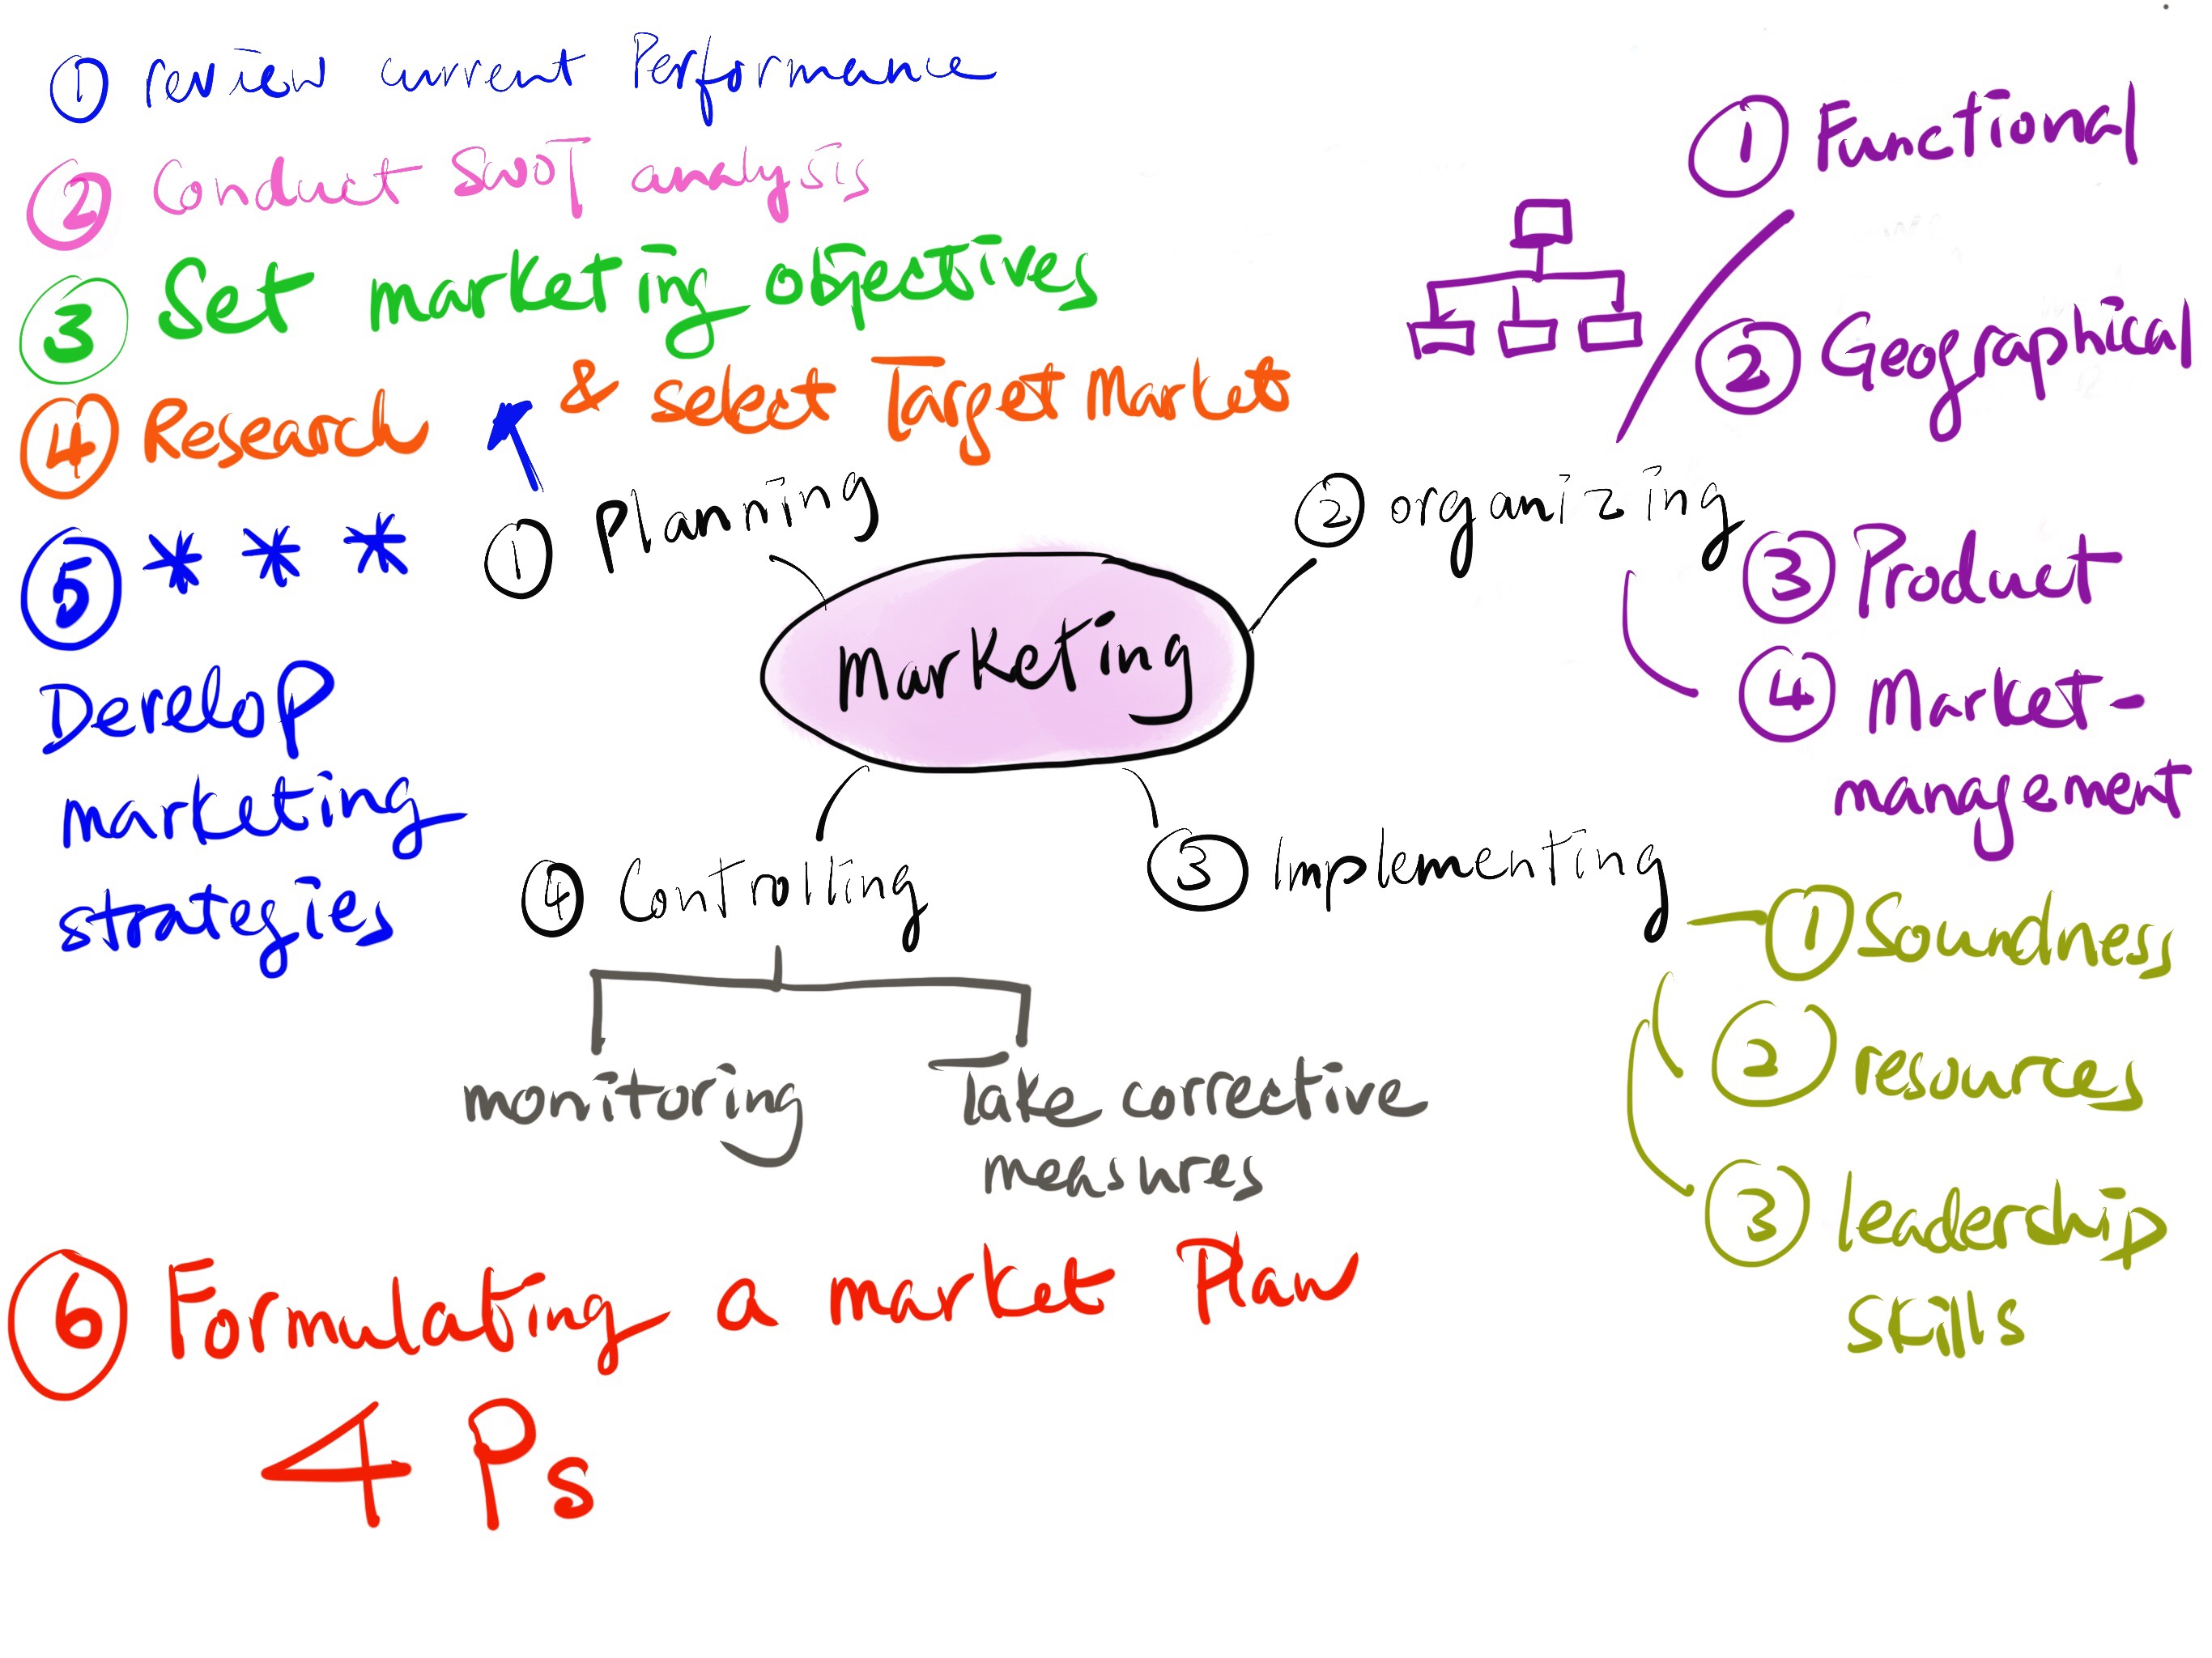 ① review current Performance
② Conduct SWOT analysis
③ Set marketing objectives
④ Research & select Target Market
⑤ * * *
Develop
marketing
strategies
① Planning
② organizing
Marketing
④ Controlling
③ Implementing
monitoring
Take corrective
measures
① Functional
② Geographical
③ Product
④ Market-
management
① Soundness
② resources
③ leadership
skills
⑥ Formulating a market Plan
4 Ps